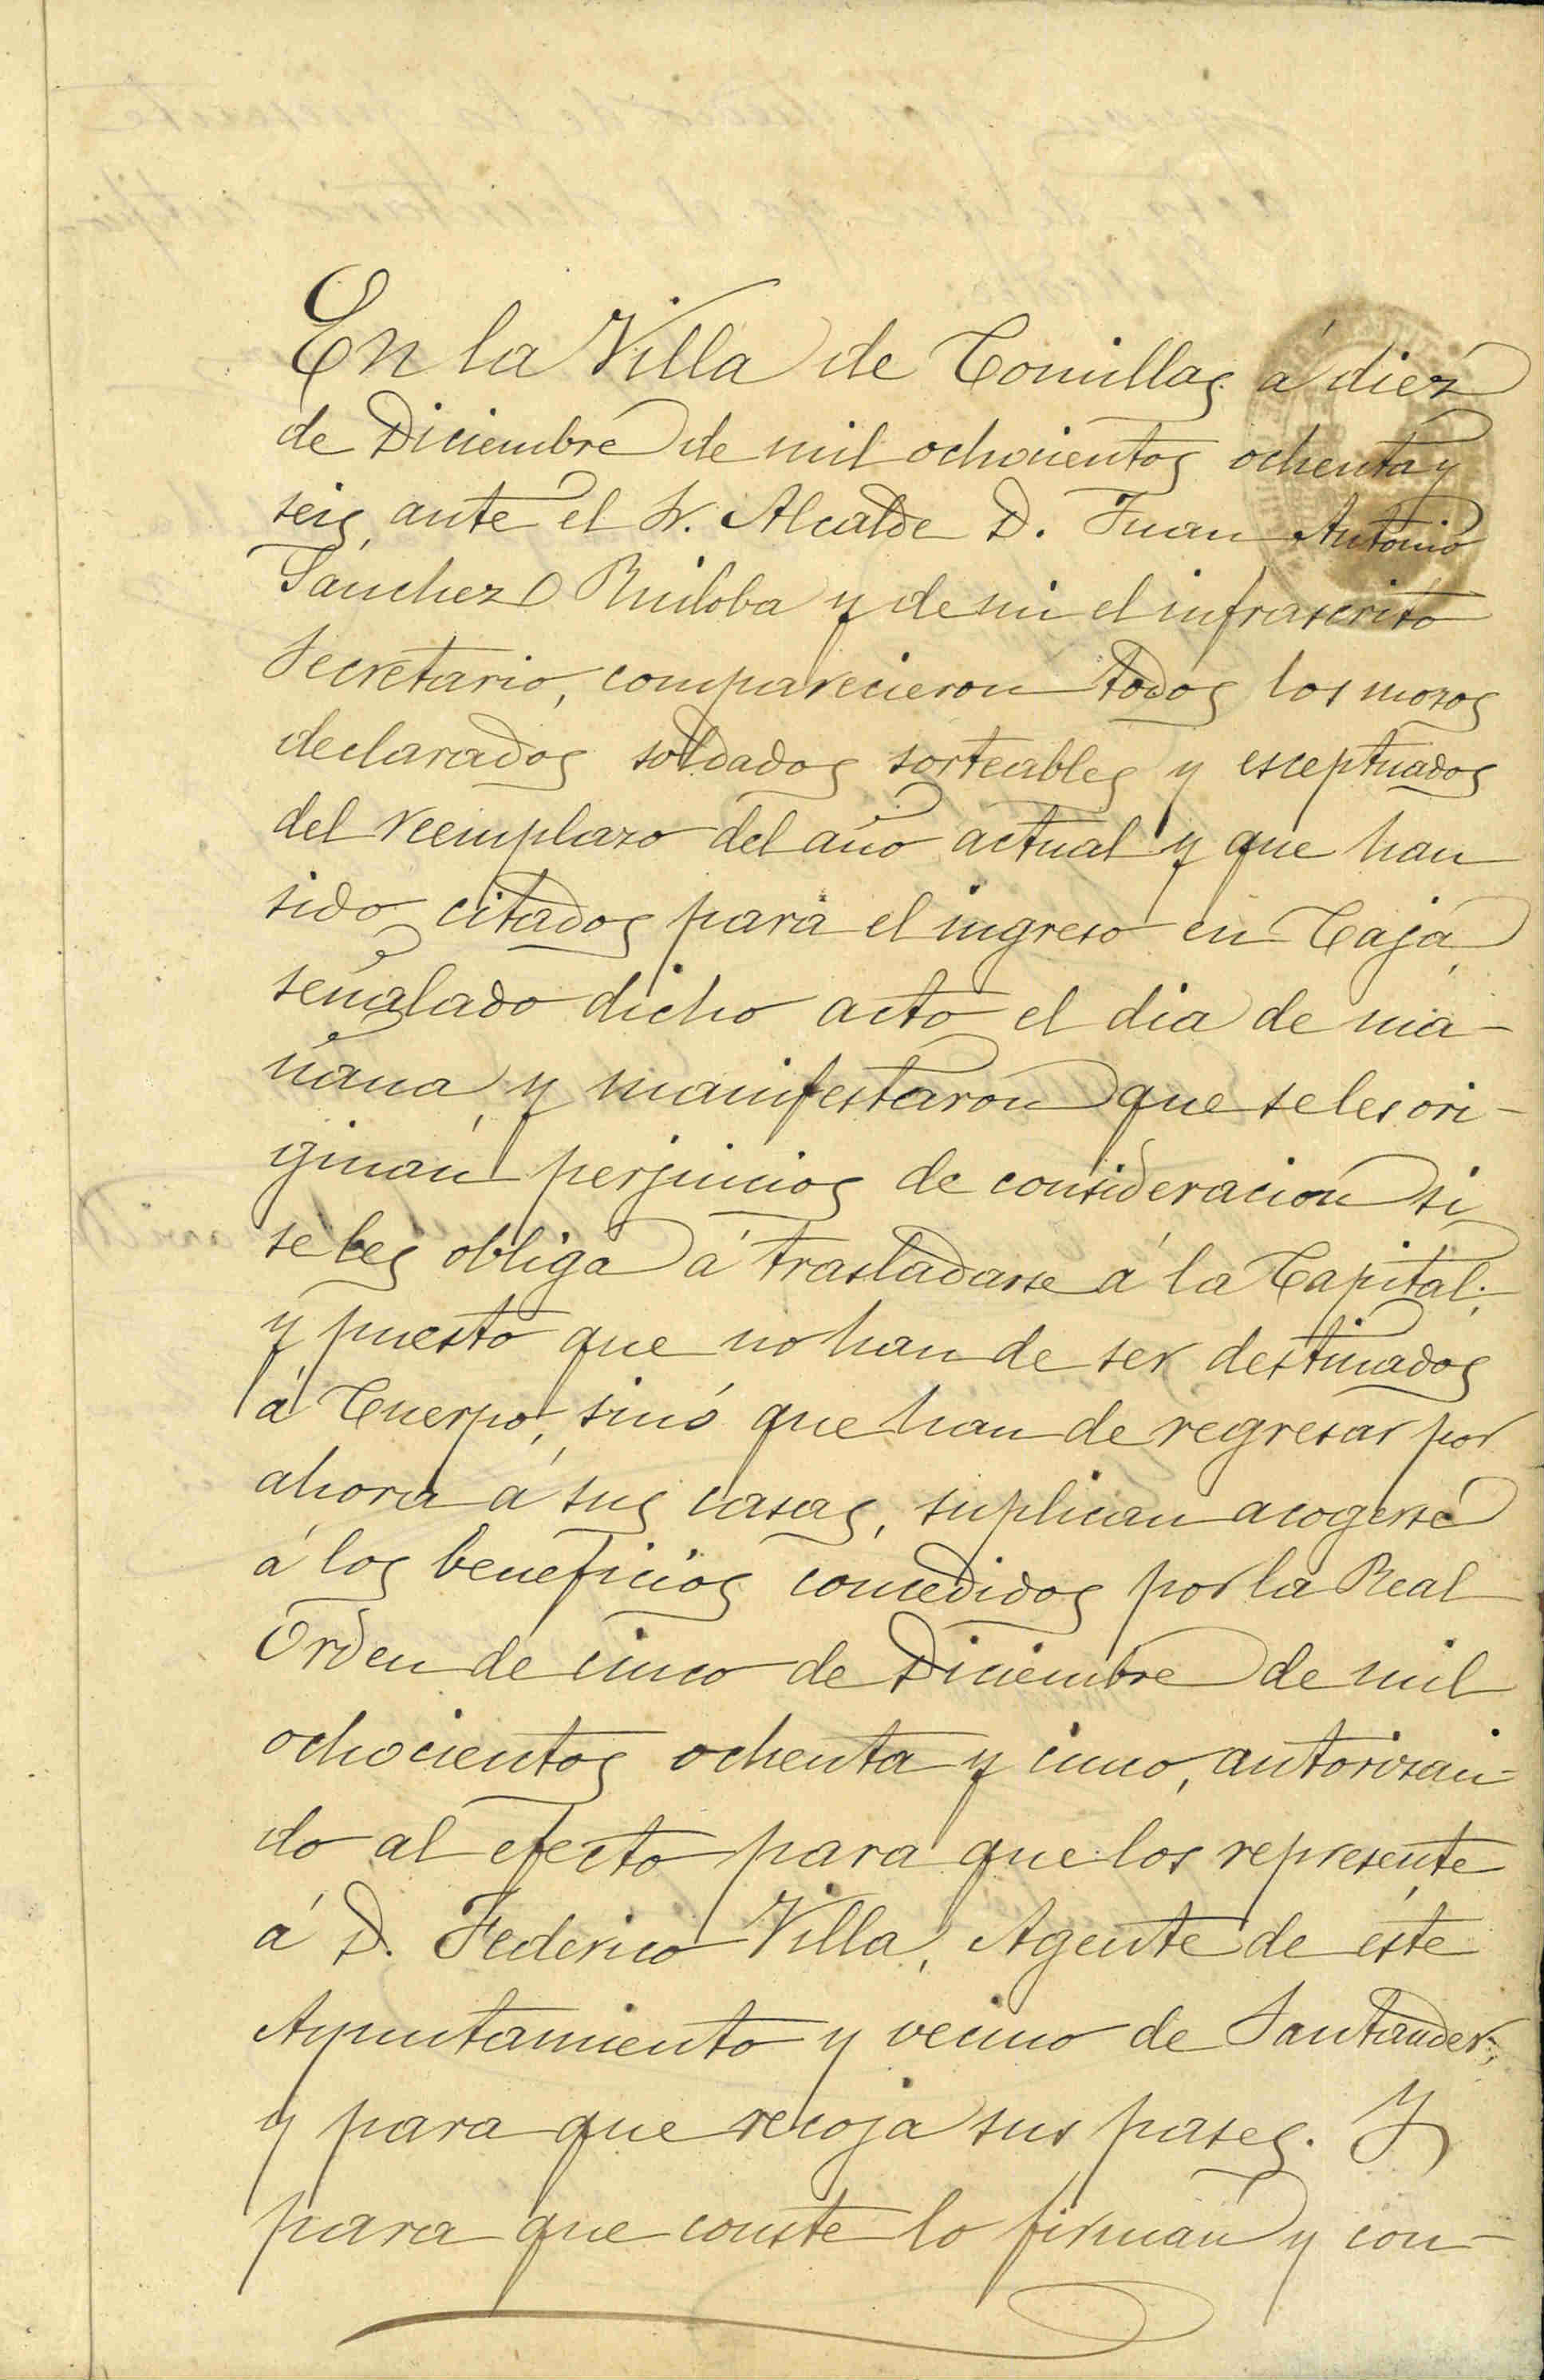 En la Villa de Comillas á diez
de Diciembre de mil ochocientos ochenta y
seis, ante el Sr. Alcalde D. Juan Antonio
Sanchez Ruiloba y de mi el infrascrito
Secretario, comparecieron todos los mozos
declarados soldados sorteables y esceptuados
del reemplazo del año actual y que han
sido citados para el ingreso en Caja,
señalado dicho acto el dia de ma-
ñana, y manifestaron que se les ori-
ginan perjuicios de consideracion si
se les obliga á trasladarse á la Capital;
y puesto que no han de ser destinados
á Cuerpo, sinó que han de regresar por
ahora á sus casas, suplican acogerse
á los beneficios concedidos por la Real
Orden de cinco de Diciembre de mil
ochocientos ochenta y cinco, autorizan-
do al efecto para que los represente
á D. Federico Villa, Agente de éste
Ayuntamiento y vecino de Santander,
y para que recoja sus pases. Y
para que conste lo firman y con-